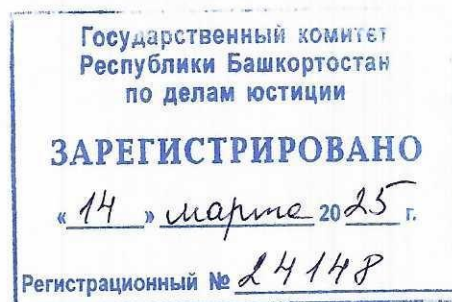 Государственный комитет
Республики Башкортостан
по делам юстиции
ЗАРЕГИСТРИРОВАНО
« 14 » марта 20 25 г.
Регистрационный № 24148